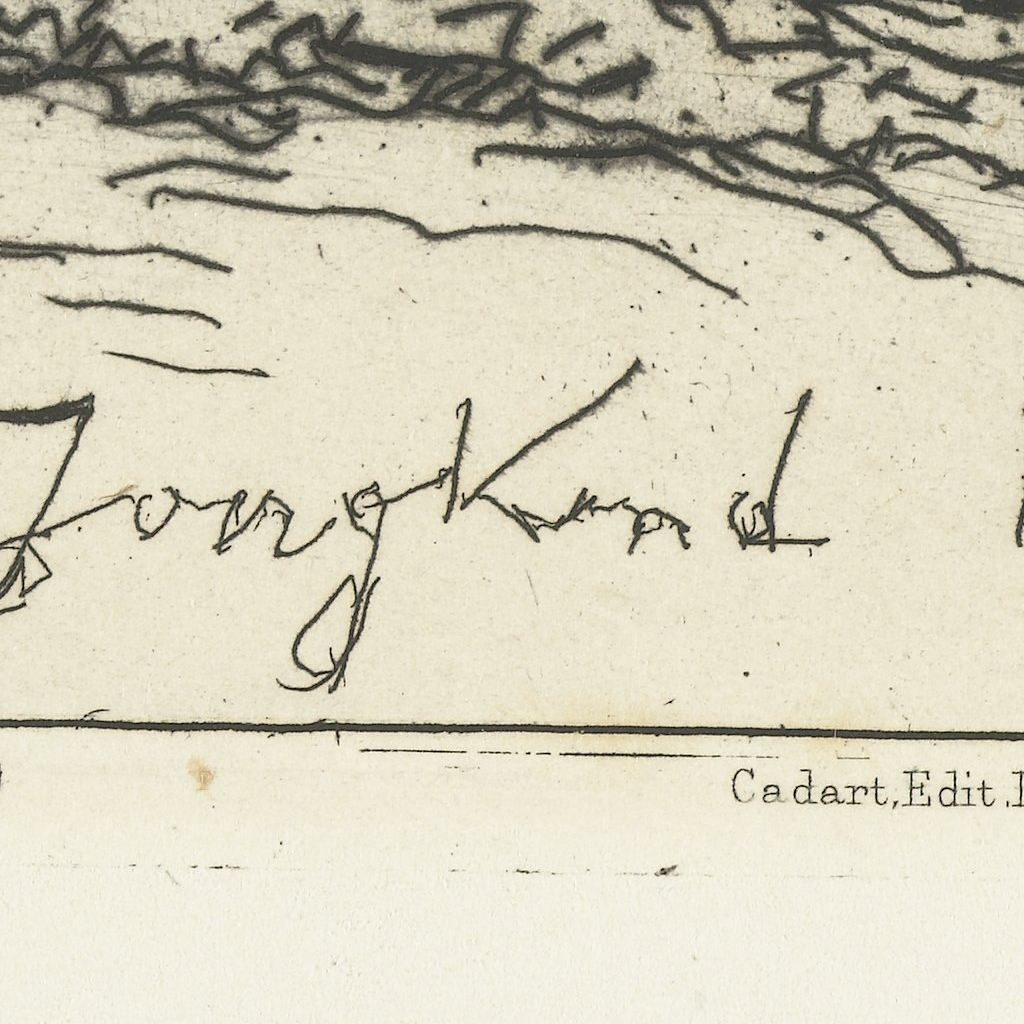 Jongkind
Cadart, Edit.